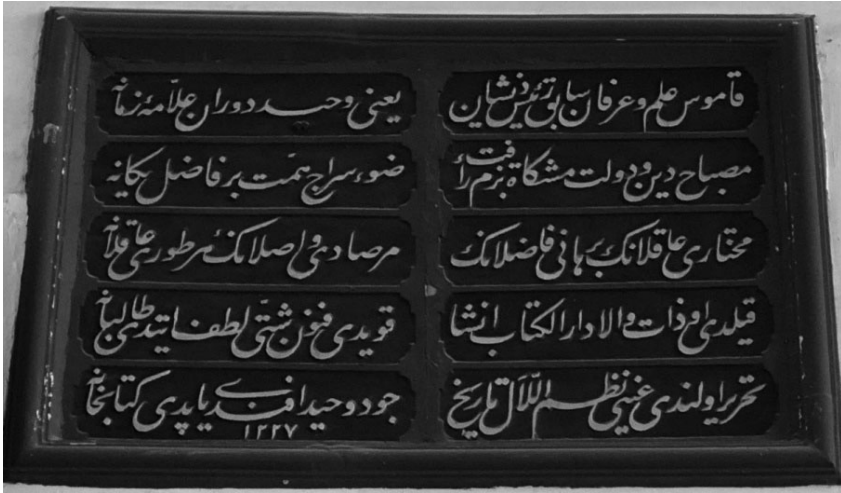 قاموس علم و عرفان سابق رئيس ذيشان يعنى وحيد دوران علّامهٔ زمانه
مصباح دين و دولت مشكاة بزم رأفت ضوء سراج همّت بر فاضل يكانه
مختارى عاقلانك برهانى فاضلانك مرصادى واصلانك هر طورى عاقلانه
قيلدى او ذات والا دار الكتاب انشا قويدى فنون شتّى لطف ايتدى طالبانه
تحرير اولندى عينى نظم اللّآل تاريخ جود وحيد افندى ياپدى كتابخانه
١٢٢٧